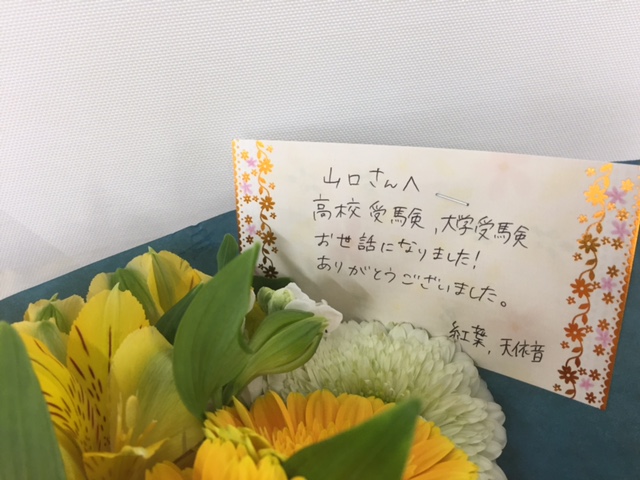 山口さんへ
高校受験,大学受験
お世話になりました!
ありがとうございました。
紅葉,天休音